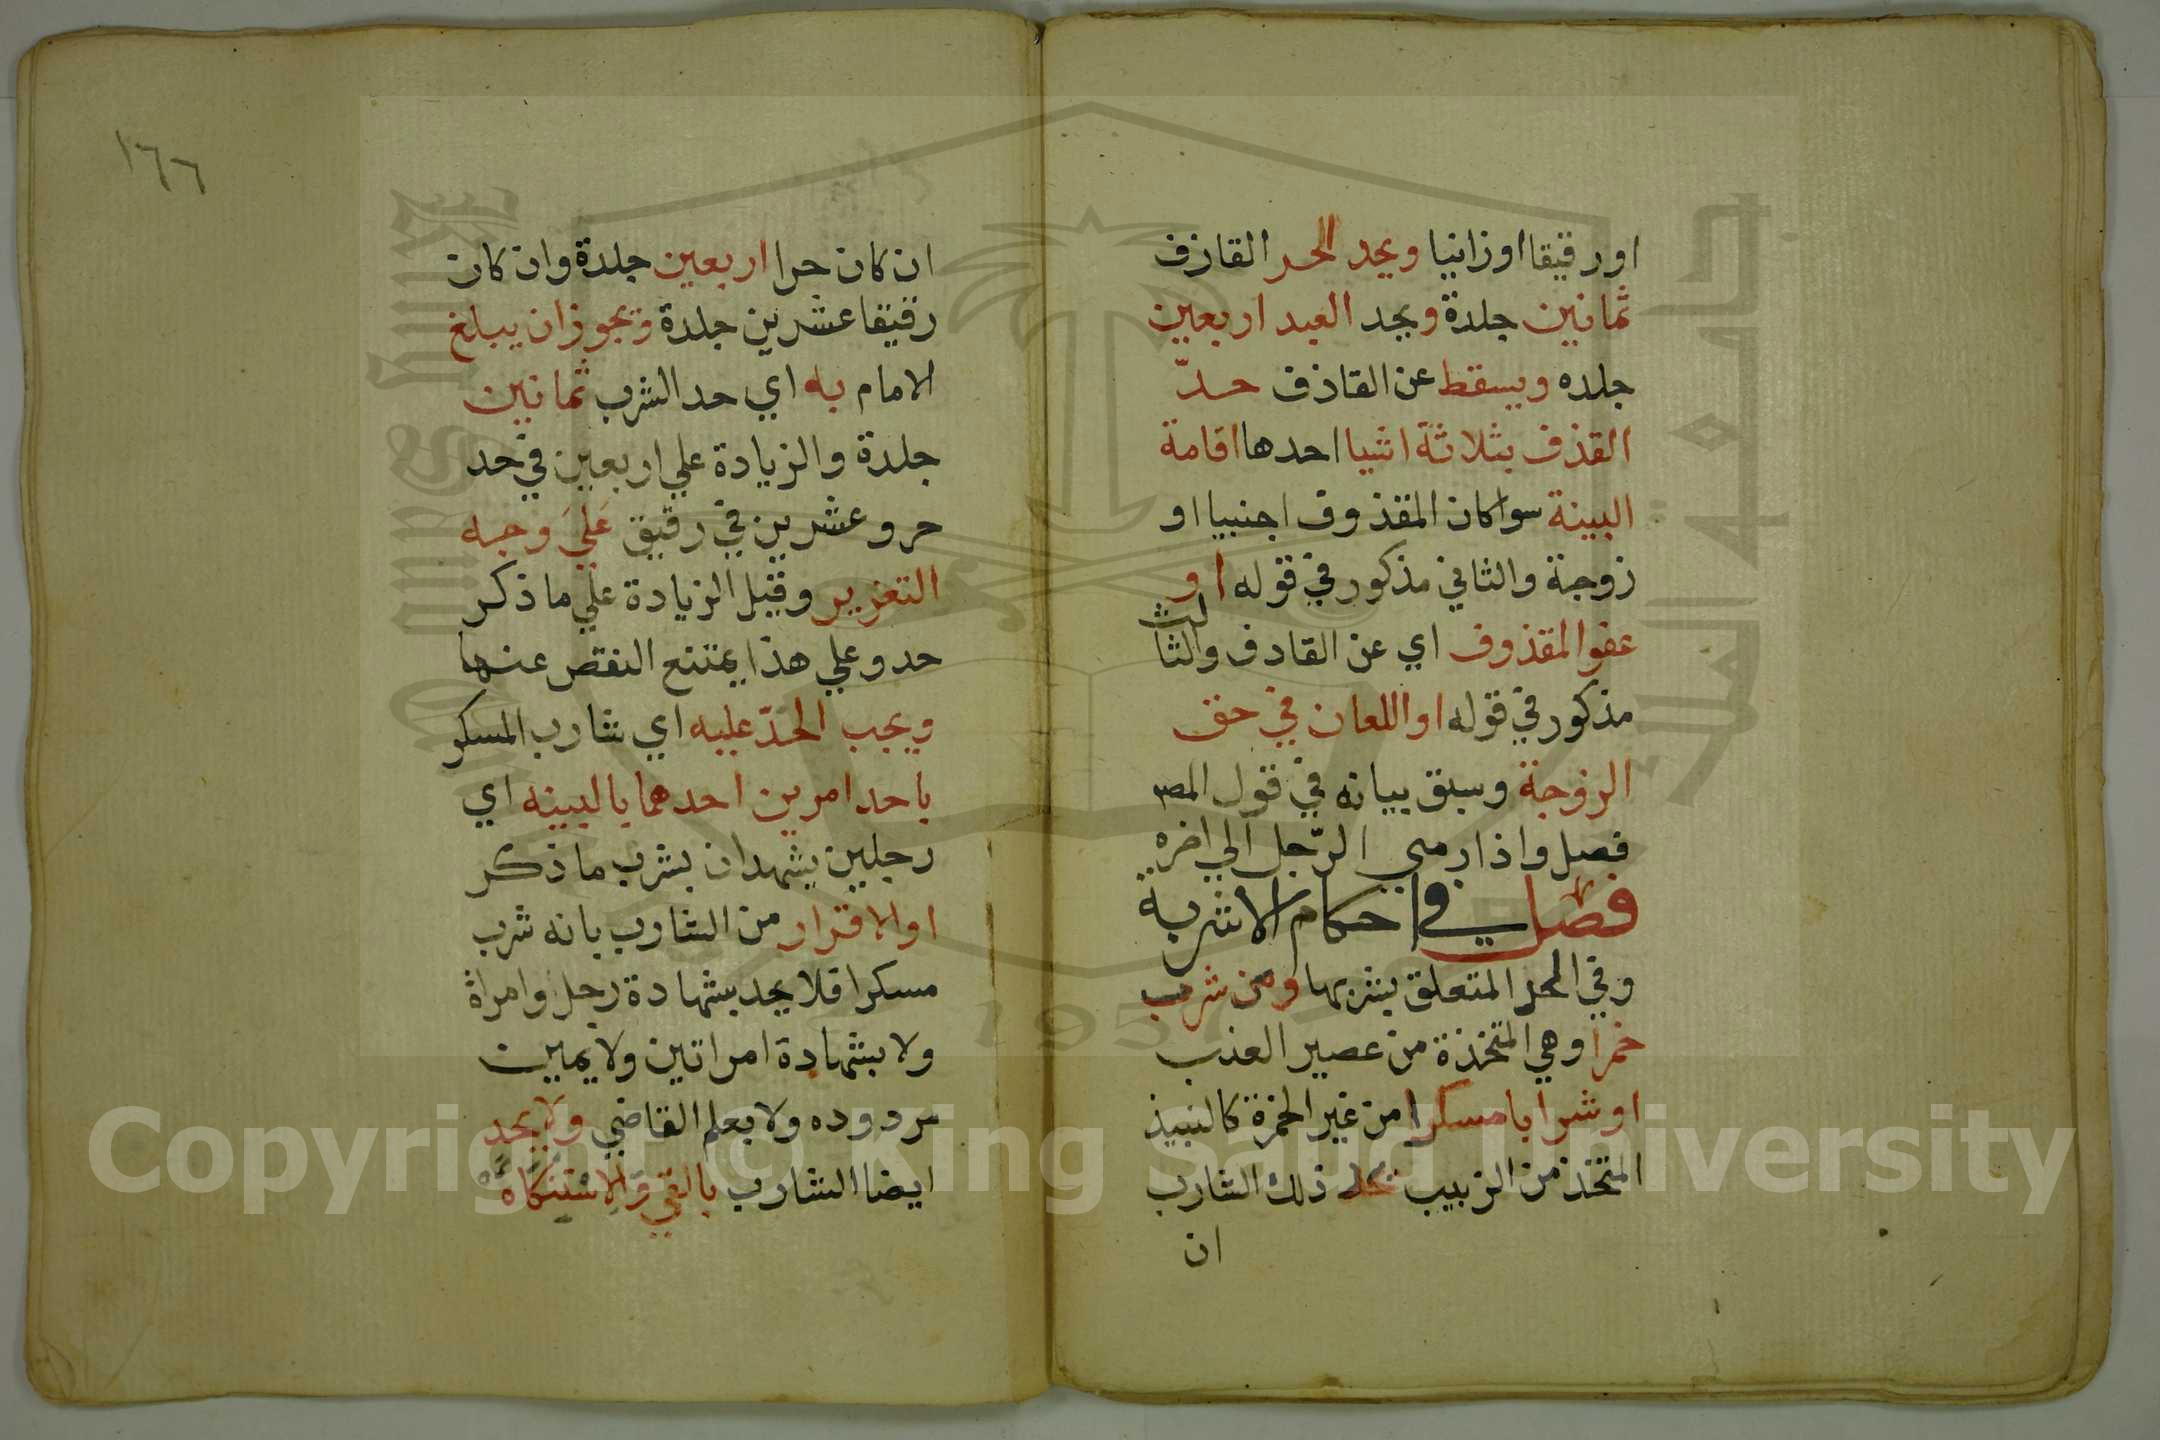 او رقيقا او زانيا ويحد الحر القازف
ثمانين جلدة ويحد العبد اربعين
جلده ويسقط عن القاذف حدّ
القذف بثلاثة اشيا احدها اقامة
البينة سوا كان المقذوف اجنبيا او
زوجة والثاني مذكور في قوله او
عفو المقذوف اي عن القادف والثالث
مذكور في قوله او اللعان في حق
الزوجة وسبق بيانه في قول المص
فصل واذا رمي الرّجل الي اخره
فصل في احكام الاشربة
وفي الحد المتعلق بشربها ومن شرب
خمرا وهي المتخذة من عصير العنب
او شرابا مسكرا من غير الخمرة كالنبيذ
المتخذ من الزبيب ذلك الشارب
ان
١٦٦
ان كان حرا اربعين جلدة وان كان
رقيقا عشرين جلدة ويجوز ان يبلغ
الامام به اي حد الشرب ثمانين
جلدة والزيادة علي اربعين في حد
حر وعشرين في رقيق علي وجه
التعزير وقيل الزيادة علي ما ذكر
حد وعلي هذا يمتنع النقص عنها
ويجب الحدّ عليه اي شارب المسكر
باحد امرين احدهما بالبينه اي
رجلين يشهدان بشرب ما ذكر
او الاقرار من الشارب بانه شرب
مسكرا فلا يحد بشهادة رجل وامراة
ولا بشهادة امراتين ولا يمين
مردوده ولا بعلم القاضي ولا يحد
ايضا الشارب بالقي والاستنكاه
Copyright © King Saud University
1957